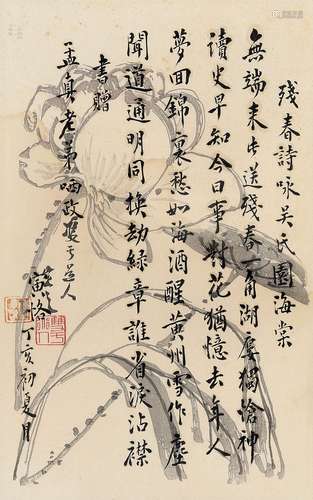 殘春詩詠吳氏園海棠
無端來此送殘春一角湖廔獨愴神
讀史早知今日事對花猶憶去年人
夢回錦裹愁如海酒醒黃州雪作塵
聞道通明同換劫綠章誰省淚沾襟
書贈
孟真老弟哂政雙亐道人
寅恪
丁亥初夏月